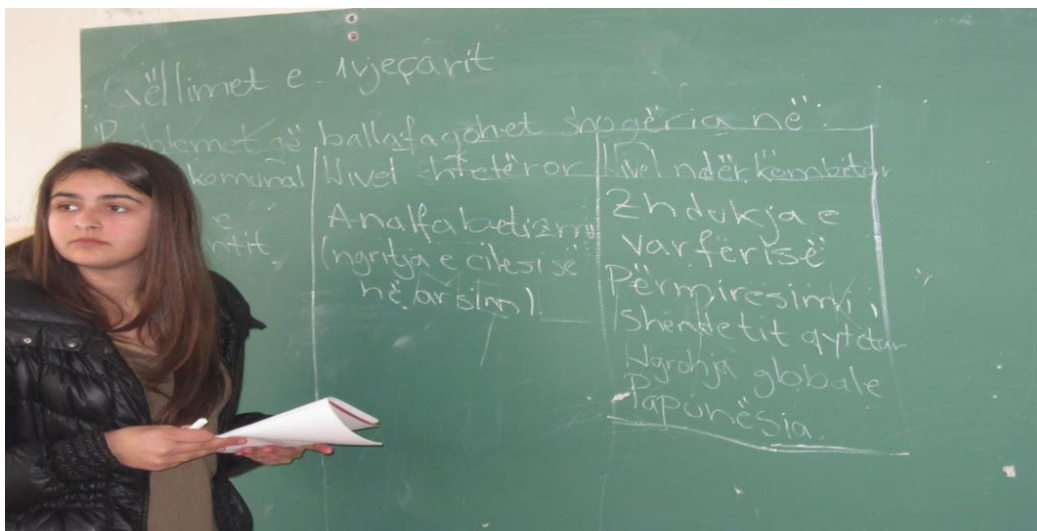 Qëllimet e 1vjeçarit
Problemet që ballafaqohet shoqëria në:
komunal Nivel shtetëror Nivel ndërkombëtar
e
ntit.
Analfabetizmi
(ngritja e cilesisë
në arsim)
Zhdukja e
varfërisë
Përmiresimi i
shendetit qytetar
Ngrohja globale
Papunësia.